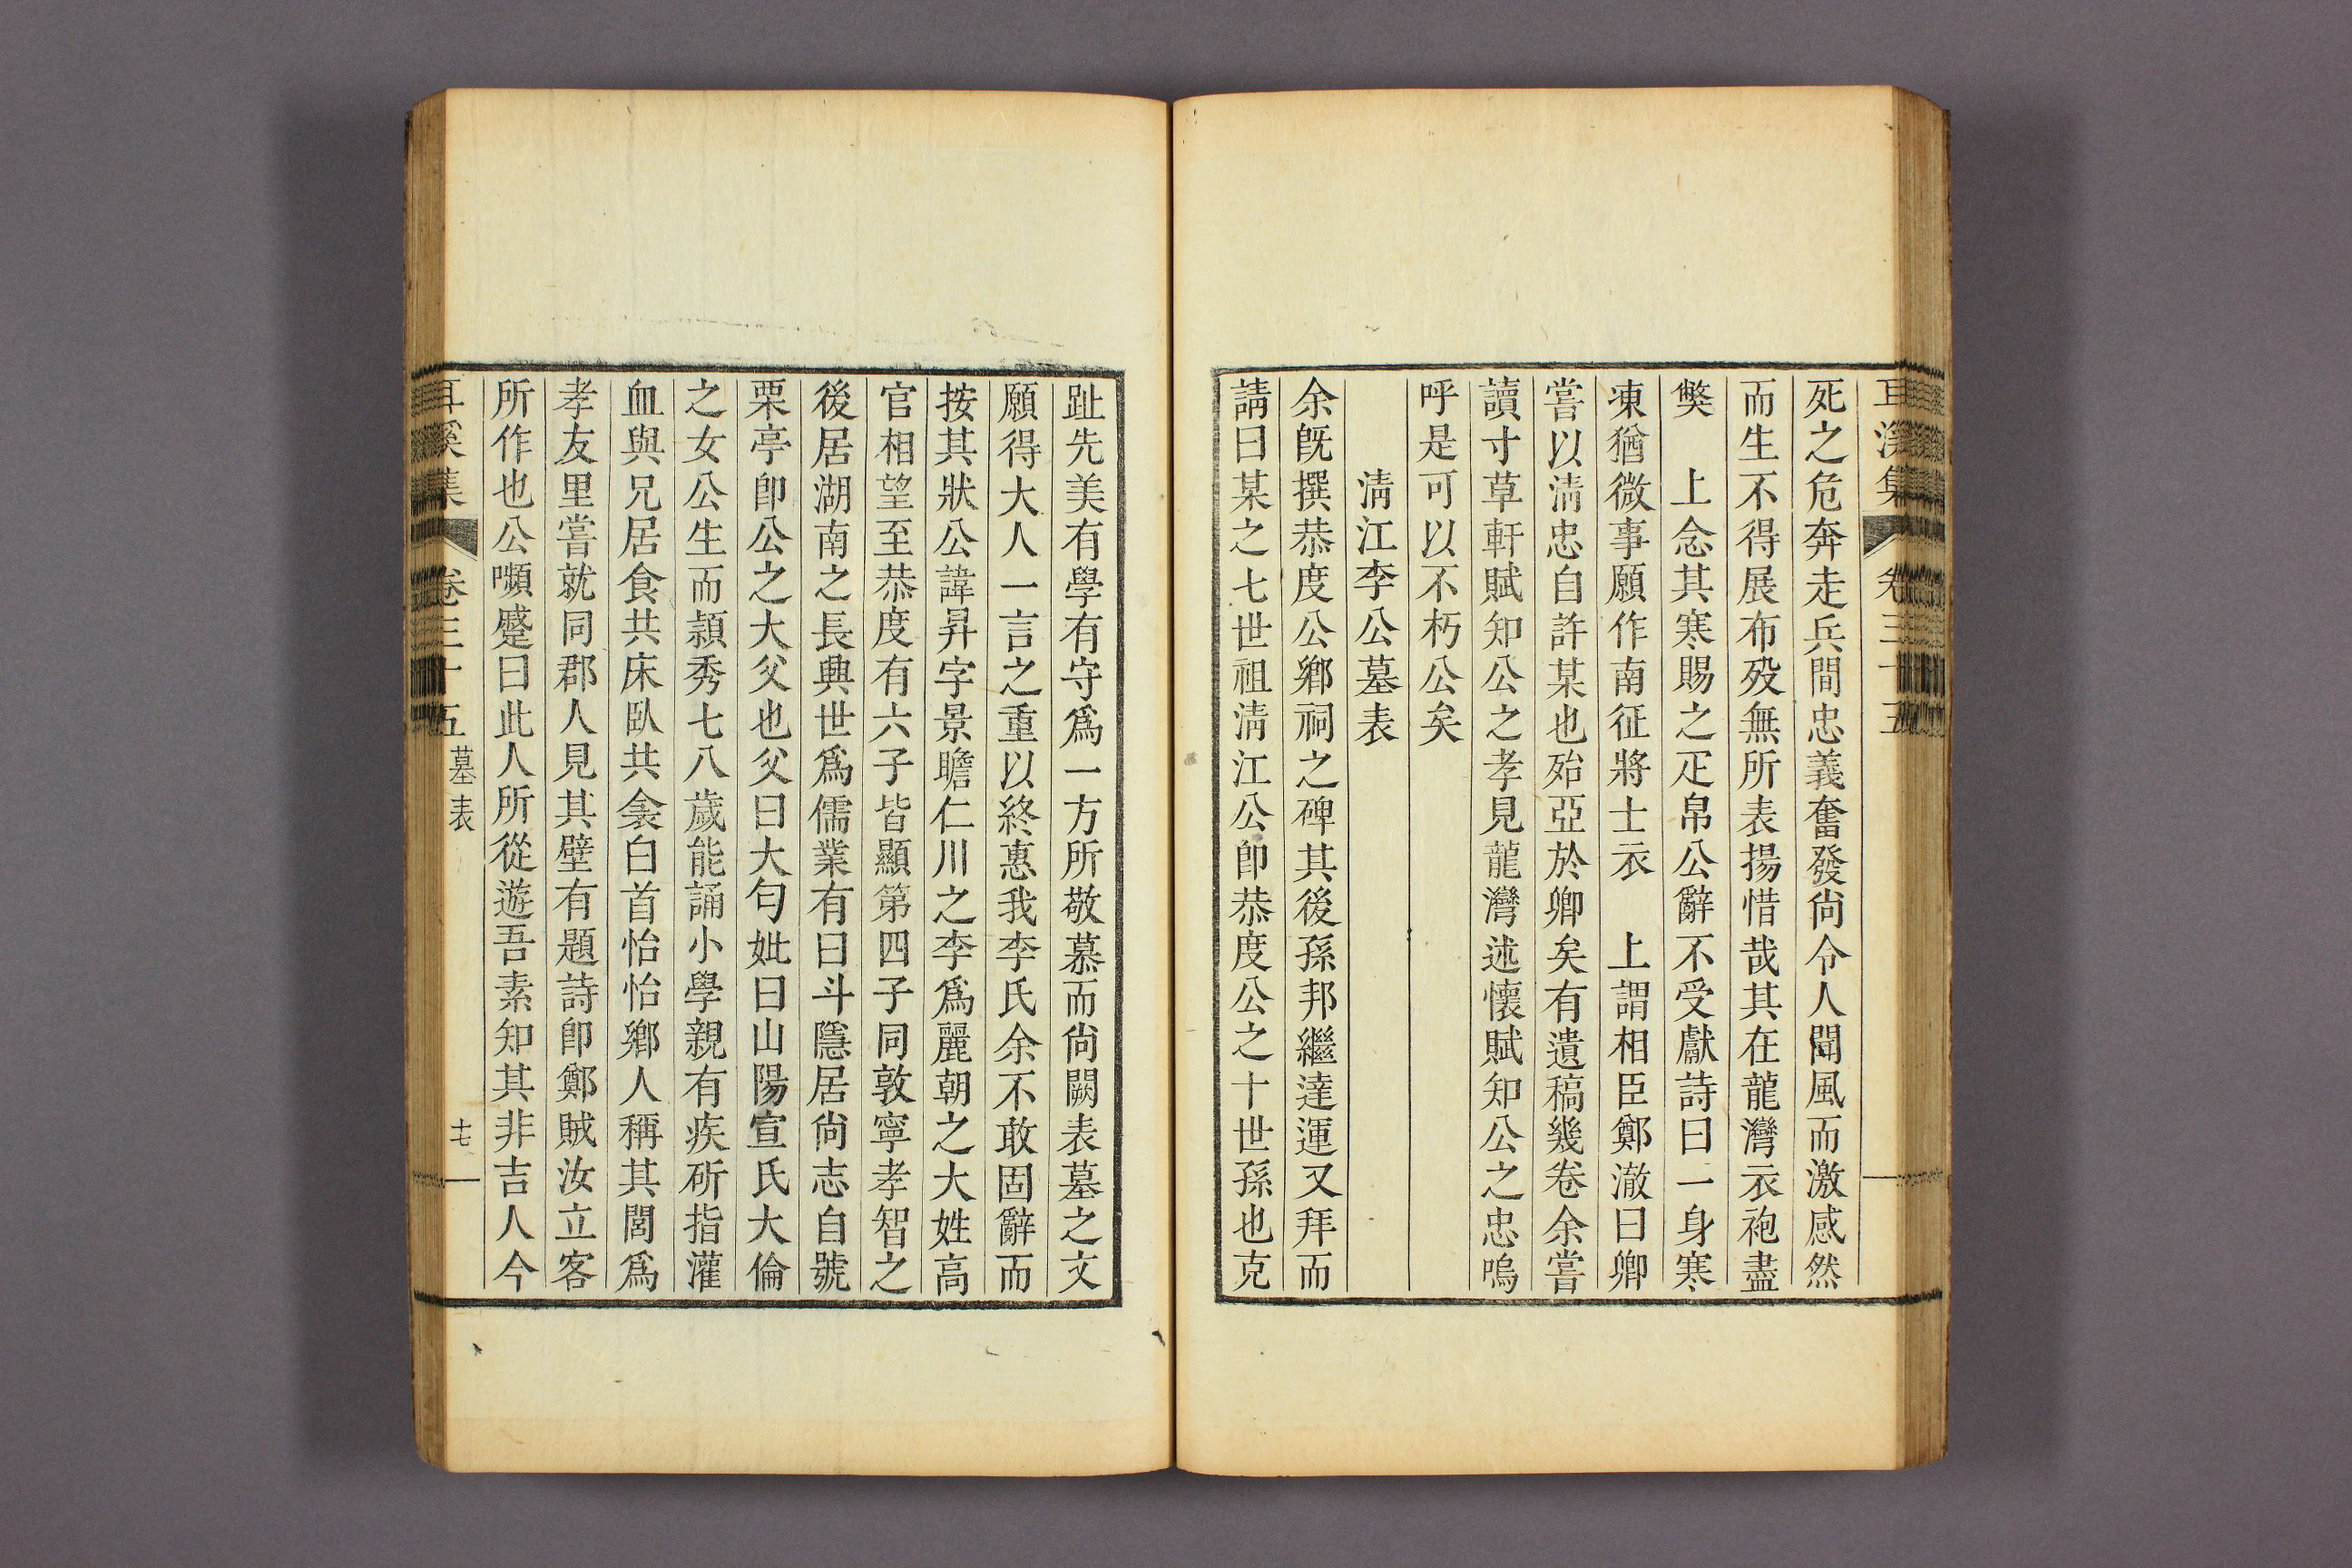 耳溪集 卷三十五
死之危奔走兵間忠義奮發尙令人聞風而激感然
而生不得展布歿無所表揚惜哉其在龍灣衣袍盡
獘 上念其寒賜之疋帛公辭不受獻詩曰一身寒
凍猶微事願作南征將士衣 上謂相臣鄭澈曰卿
嘗以淸忠自許某也殆亞於卿矣有遺稿幾卷余嘗
讀寸草軒賦知公之孝見龍灣述懷賦知公之忠嗚
呼是可以不朽公矣
淸江李公墓表
余旣撰恭度公鄕祠之碑其後孫邦繼達運又拜而
請曰某之七世祖淸江公卽恭度公之十世孫也克
趾先美有學有守爲一方所敬慕而尙闕表墓之文
願得大人一言之重以終惠我李氏余不敢固辭而
按其狀公諱昇字景瞻仁川之李爲麗朝之大姓高
官相望至恭度有六子皆顯第四子同敦寧孝智之
後居湖南之長興世爲儒業有曰斗隱居尙志自號
栗亭卽公之大父也父曰大匀妣曰山陽宣氏大倫
之女公生而穎秀七八歲能誦小學親有疾斫指灌
血與兄居食共床臥共衾白首怡怡鄕人稱其閭爲
孝友里嘗就同郡人見其壁有題詩卽鄭賊汝立客
所作也公嚬蹙曰此人所從遊吾素知其非吉人今
耳溪集 卷三十五 墓表 十七